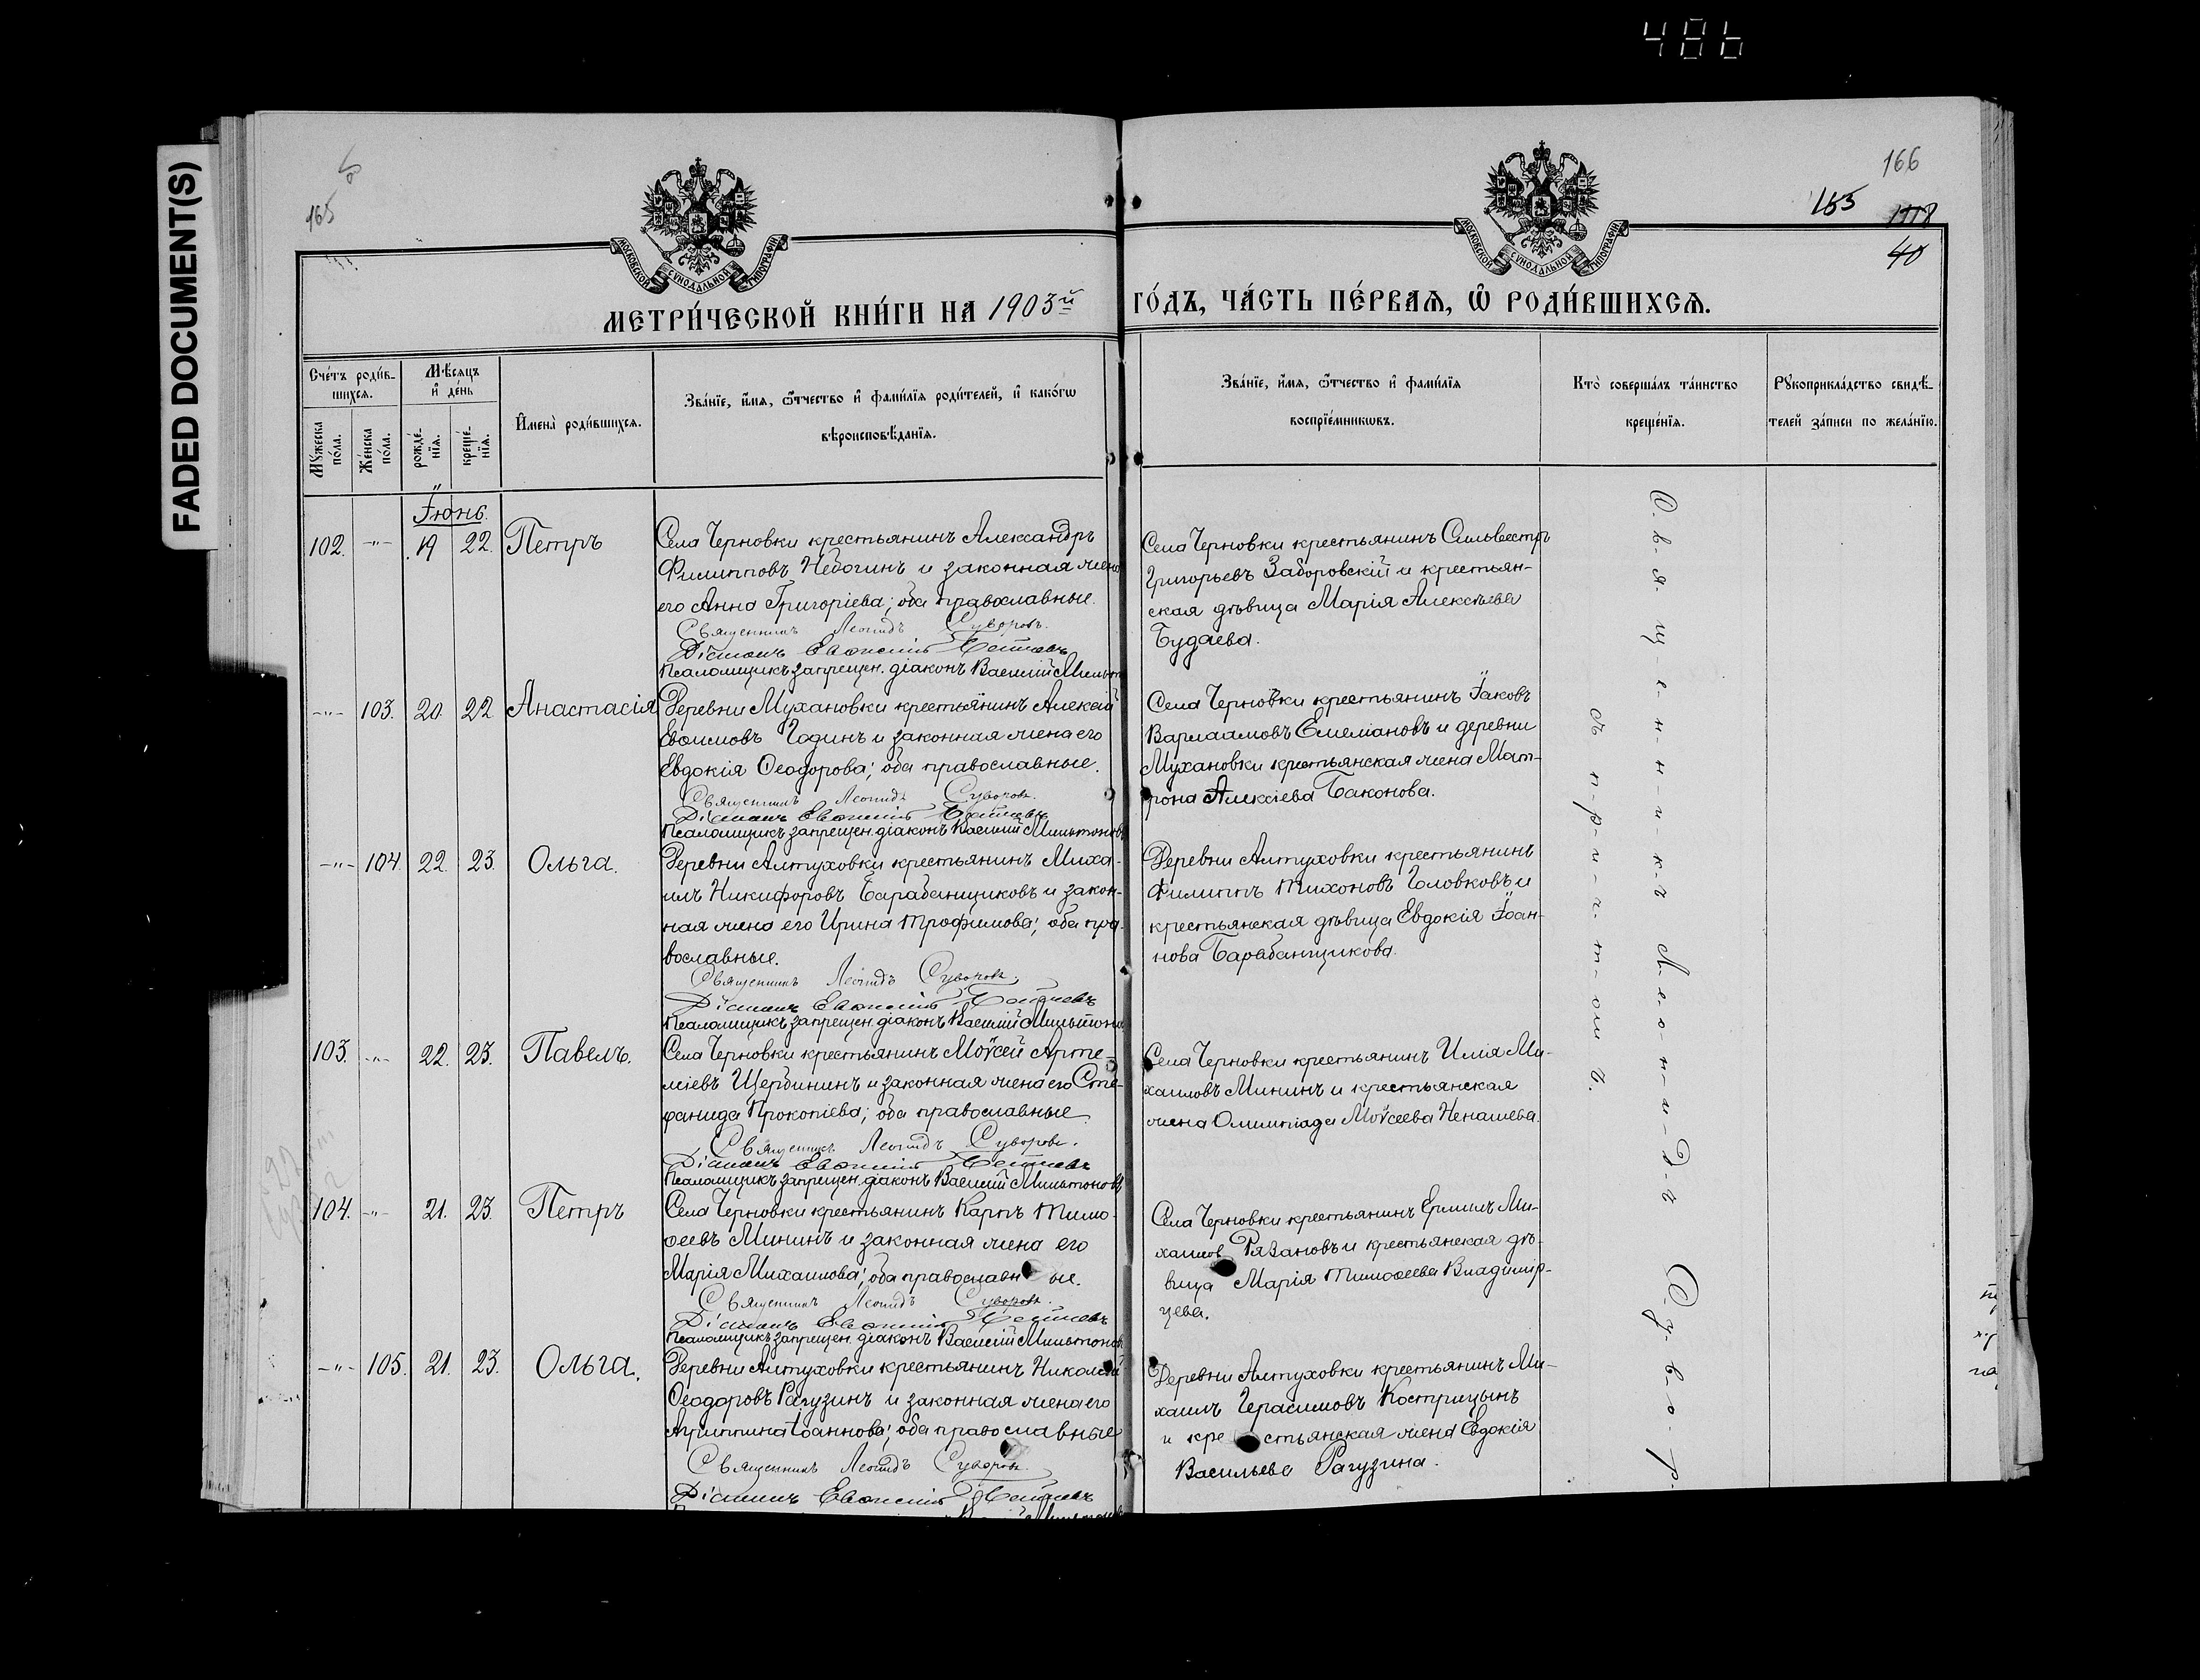 486
FADED DOCUMENT(S)
165
166
155
40
МОСКОВСКОЙ СУНОДАЛЬНОЙ ТИПОГРАФІИ
МОСКОВСКОЙ СУНОДАЛЬНОЙ ТИПОГРАФІИ
МЕТРИ́ЧЕСКОЙ КНИ́ГИ НА 1903й ГО́ДЪ, ЧА́СТЬ ПЕ́РВАѦ, Ѽ РОДИ́ВШИХСѦ.
Сче́тъ роди́в-
шихсѧ.
Мѣ́сѧцъ
и҆ де́нь
Мꙋ́жеска
по́ла.
Же́нска
по́ла.
рожде́-
нїѧ.
креще́-
нїѧ.
И҆мена̀ роди́вшихсѧ.
Зва́нїе, и҆́мѧ, ѻ҆́тчество и҆ фамѝлїѧ роди́телей, и҆ како́гѡ
вѣроисповѣ́данїѧ.
Зва́нїе, и҆́мѧ, ѻ҆́тчество и҆ фами́лїѧ
воспрїе́мникѡвъ.
Кто̀ соверша́лъ та́инство
креще́нїѧ.
Рꙋкоприкла́дство свидѣ́-
телей за́писи по жела́нїю.
Іюнь.
102. -"- 19 22. Петръ
Села Черновки крестьянинъ Александръ
Филипповъ Небогинъ и законная жена
его Анна Григоріева; оба православные.
Священникъ Леонидъ Суворовъ.
Діаконъ Евѳимій
Псаломщикъ запрещен. діаконъ Василій
Села Черновки крестьянинъ Сильвестръ
Григорьевъ Заборовскій и крестьян-
ская дѣвица Марія Алексѣева
Будаева.
-"- 103. 20. 22 Анастасія
Деревни Мухановки крестьянинъ Алексій
Евѳимовъ Годинъ и законная жена его
Евдокія Ѳеодорова; оба православные.
Священникъ Леонидъ Суворовъ.
Діаконъ Евѳимій
Псаломщикъ запрещен. діаконъ Василій Мильтоновъ
Села Черновки крестьянинъ Іаковъ
Варлаамовъ Емеліановъ и деревни
Мухановки крестьянская жена Мат-
рона Алексіева Баконова.
-"- 104 22. 23. Ольга.
Деревни Алтуховки крестьянинъ Миха-
илъ Никифоровъ Барабанщиковъ и закон-
ная жена его Ирина Трофимова; оба пра-
вославные.
Священникъ Леонидъ Суворовъ.
Діаконъ Евѳимій
Псаломщикъ запрещен. діаконъ Василій Мильтонов
Деревни Алтуховки крестьянинъ
Филиппъ Тихоновъ Головковъ и
крестьянская дѣвица Евдокія Іоан-
нова Барабанщикова.
103. -"- 22. 23. Павелъ.
Села Черновки крестьянинъ Моѵсей Арте-
міевъ Щербининъ и законная жена его Сте-
фанида Прокопіева; оба православные
Священникъ Леонидъ Суворовъ.
Діаконъ Евѳимій
Псаломщикъ запрещен. діаконъ Василій Мильтоновъ
Села Черновки крестьянинъ Илія Ми-
хаиловъ Мининъ и крестьянская
жена Олимпіада Моѵсеева Ненашева.
104. -"- 21. 23. Петръ
Села Черновки крестьянинъ Карпъ Тимо-
ѳеевъ Мининъ и законная жена его
Марія Михаилова; оба православные.
Священникъ Леонидъ Суворовъ.
Діаконъ Евѳимій
Псаломщикъ запрещен. діаконъ Василій Мильтонов
Села Черновки крестьянинъ Ермилъ Ми-
хаилов Рязановъ и крестьянская дѣ-
вица Марія Тимоѳеева Владимір-
цева.
-"- 105. 21. 23. Ольга.
Деревни Алтуховки крестьянинъ Николай
Ѳеодоровъ Рагузинъ и законная жена его
Агриппина Іоаннова; оба православные
Священникъ Леонидъ Суворовъ.
Діаконъ Евѳимій
Деревни Алтуховки крестьянинъ Ми-
хаилъ Герасимовъ Кострицынъ
и крестьянская жена Евдокія
Васильева Рагузина.
С-в-я-щ-е-н-н-и-к-ъ Л-е-о-н-и-д-ъ С-у-в-о-р-
съ п-р-и-ч-т-ом ъ.